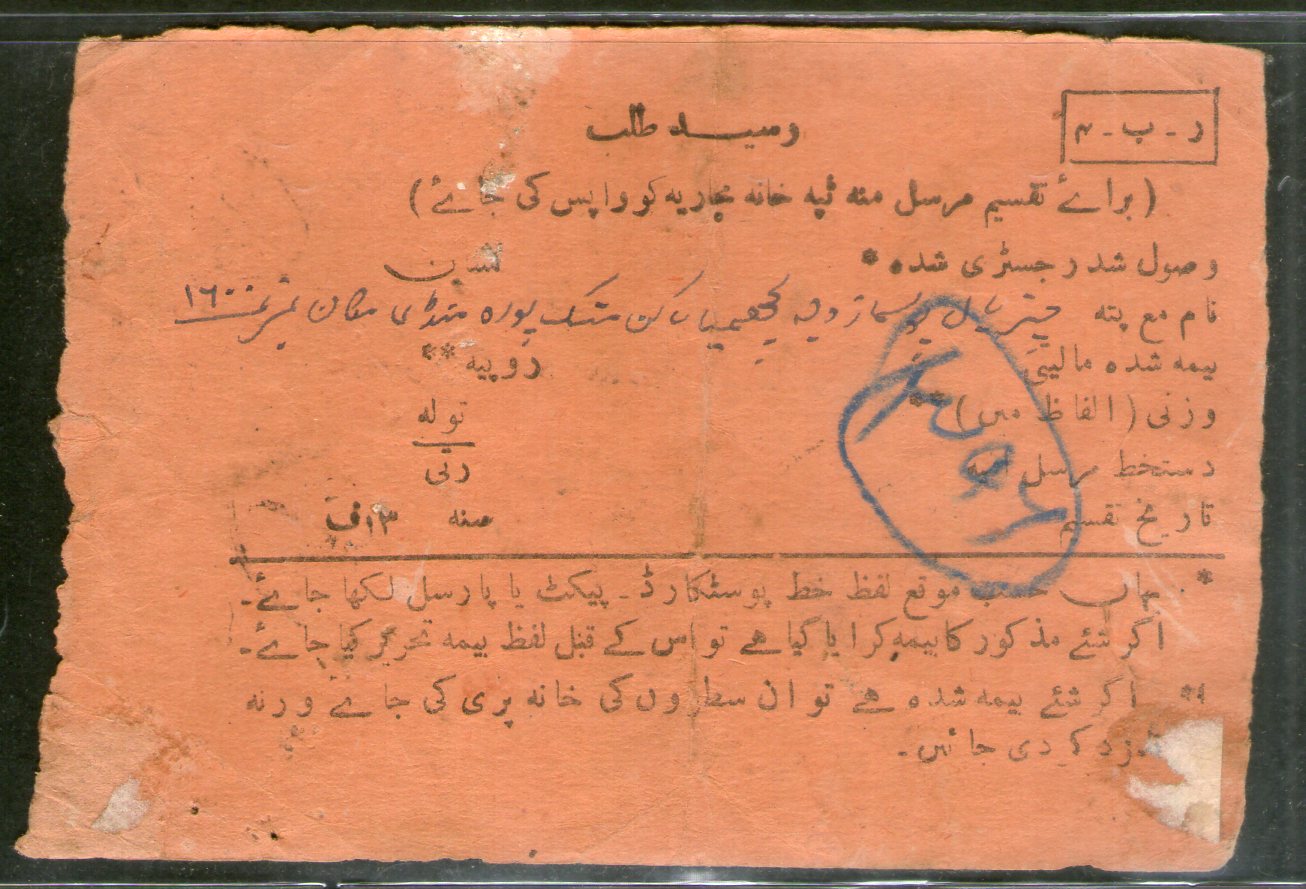 ر - ب - ۳
رسید طلب
(برائے تقسیم مرسل منہ ٹپہ خانہ جاریہ کو واپس کی جائے)
وصول شد رجسٹری شدہ *
نام مع پتہ مکان نمبر ۱۶۰۰
بیمہ شدہ مالیتی روپیہ **
وزنی (الفاظ میں) ** تولہ
رتی
دستخط مرسل الیہ
تاریخ تقسیم سنہ ۱۳ف
* یہاں حسب موقع لفظ خط پوسٹکارڈ - پیکٹ یا پارسل لکھا جائے -
اگر شئے مذکور کا بیمہ کرایا گیا ہے تو اس کے قبل لفظ بیمہ تحریر کیا جائے -
** اگر شئے بیمہ شدہ ہے تو ان سطروں کی خانہ پری کی جائے ورنہ
قلمزد کر دی جائیں -